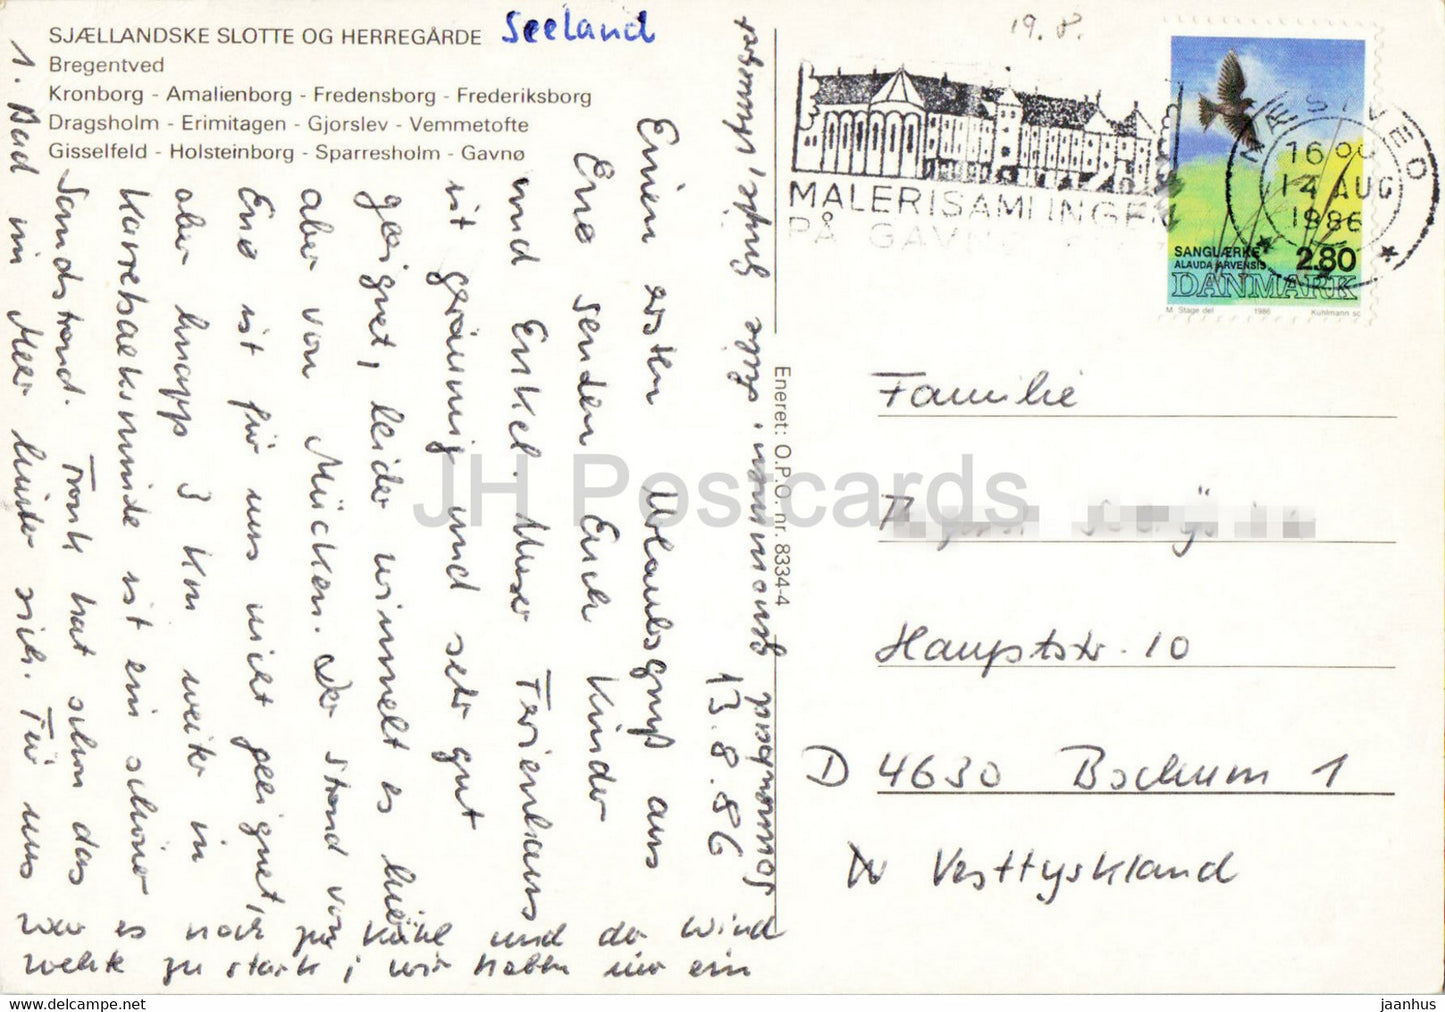 SJÆLLANDSKE SLOTTE OG HERREGÅRDE Seeland
Bregentved
Kronborg - Amalienborg - Fredensborg - Frederiksborg
Dragsholm - Erimitagen - Gjorslev - Vemmetofte
Gisselfeld - Holsteinborg - Sparresholm - Gavnø
13.8.86
Einen ersten Urlaubsgruß aus
Enø senden Euch Kinder
und Enkel. Unser Ferienhaus
ist geräumig und sehr gut
geeignet, leider wimmelt es hier
aber von Mücken. Der Strand von
Enø ist für uns nicht geeignet,
aber knapp 3 km weiter in
Karrebæksminde ist ein schöner
Sandstrand. Frank hat schon das
1. Bad im Meer hinter sich. Für uns
war es noch zu kühl und der Wind
wehte zu stark, wir haben nur ein
Sonnenbad genommen.
Eneret: O.P.O. nr. 8334-4
19.8.
MALERISAMLINGEN
PÅ GAVNØ
NÆSTVED
16
14 AUG
1986
SANGLÆRKE
ALAUDA ARVENSIS
2.80
DANMARK
M Stage del 1986 Kühlmann sc
Familie
Hauptstr. 10
D 4630 Bochum 1
Vesttyskland
JH Postcards
jaanhus
https://www.delcampe.net